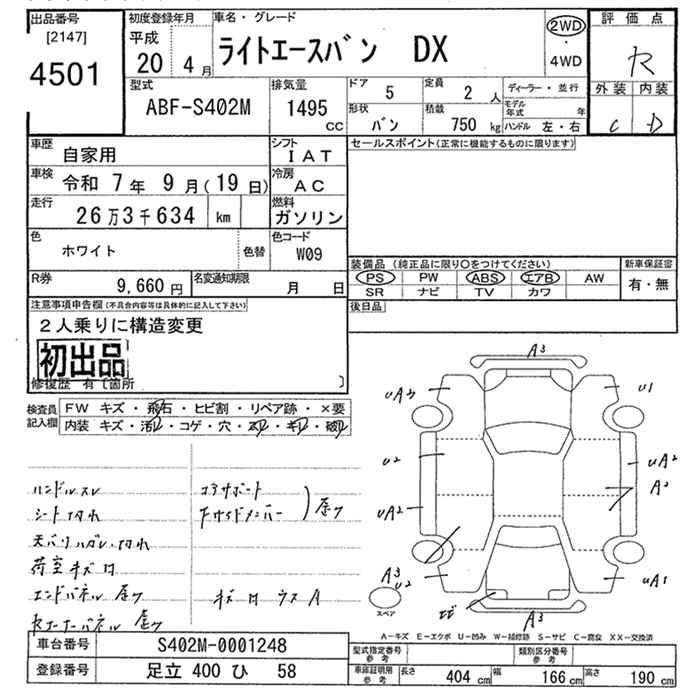 出品番号
[2147]
4501
初度登録年月
平成
20 4月
車名・グレード
ライトエースバン DX
2WD
・
4WD
評価点
R
外装 内装
C D
型式
ABF-S402M
排気量
1495
CC
ドア
5
定員
2人
ディーラー・並行
形状
バン
積載
750 kg
モデル年式 年
ハンドル 左・右
車歴
自家用
シフト
IAT
セールスポイント(正常に機能するものに限ります)
車検
令和 7年 9月(19日)
冷房
AC
走行
26万3千634 km
燃料
ガソリン
色
ホワイト
色替
色コード
W09
装備品 (純正品に限り○をつけてください)
新車保証書
PS PW ABS エアB AW
有・無
SR ナビ TV カワ
R券
9,660円
名変通知期限
月 日
後日品
注意事項申告欄(不具合内容等は具体的に記入して下さい)
2人乗りに構造変更
初出品
修復歴 有〔箇所 〕
検査員
記入欄
FW キズ・飛石・ヒビ割・リペア跡・×要
内装 キズ・汚レ・コゲ・穴・スレ・キレ・破レ
ハンドルスレ
シート切れ
天バリハガレ・切れ
荷室キズ凹
エンドパネル 歪ク
コアサポート
下サイドメンバー
歪ク
キズ凹 ウスA
A3
UA3
U1
U2
UA2
A2
UA2
A3
U2
UA1
エビ
A3
スペア
A-キズ E-エクボ U-凹み W-補修跡 S-サビ C-腐食 XX-交換済
車台番号
S402M-0001248
登録番号
足立 400 ひ 58
型式指定番号
参考
類別区分番号
参考
車庫証明用
参考
長さ 404 cm
幅 166 cm
高さ 190 cm